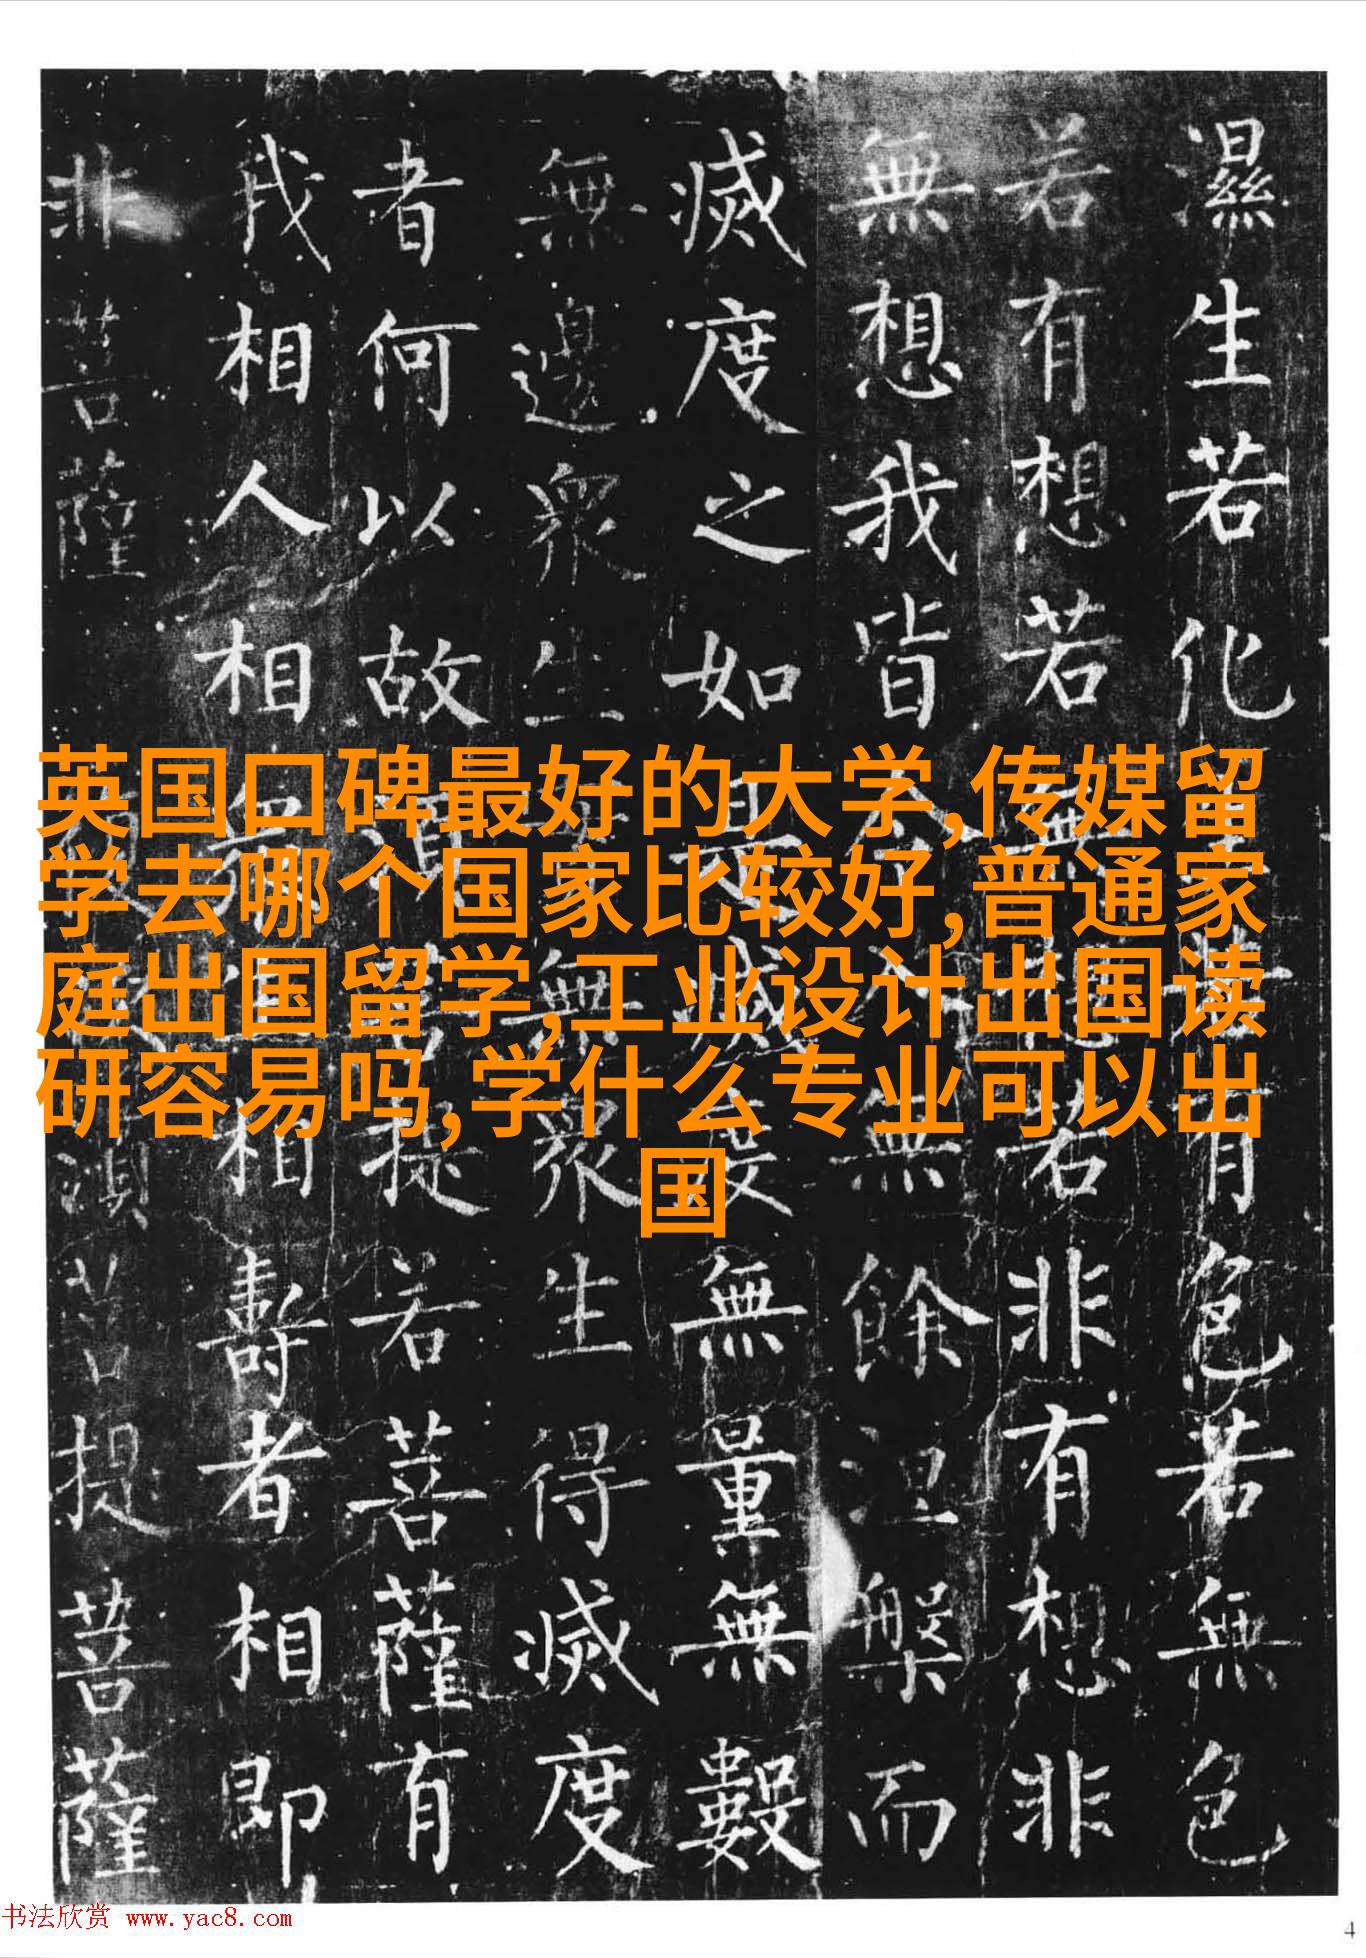 濕生若化生若有色若無色
若有想若無想若非有想非
無想我皆令入無餘涅槃而
滅度之如是滅度無量無數
無邊眾生實無眾生得滅度
者何以故須菩提若菩薩有
我相人相眾生相壽者相即
非菩薩 復次須菩提菩薩
英国口碑最好的大学,传媒留
学去哪个国家比较好,普通家
庭出国留学,工业设计出国读
研容易吗,学什么专业可以出
国
书法欣赏 www.yac8.com
4